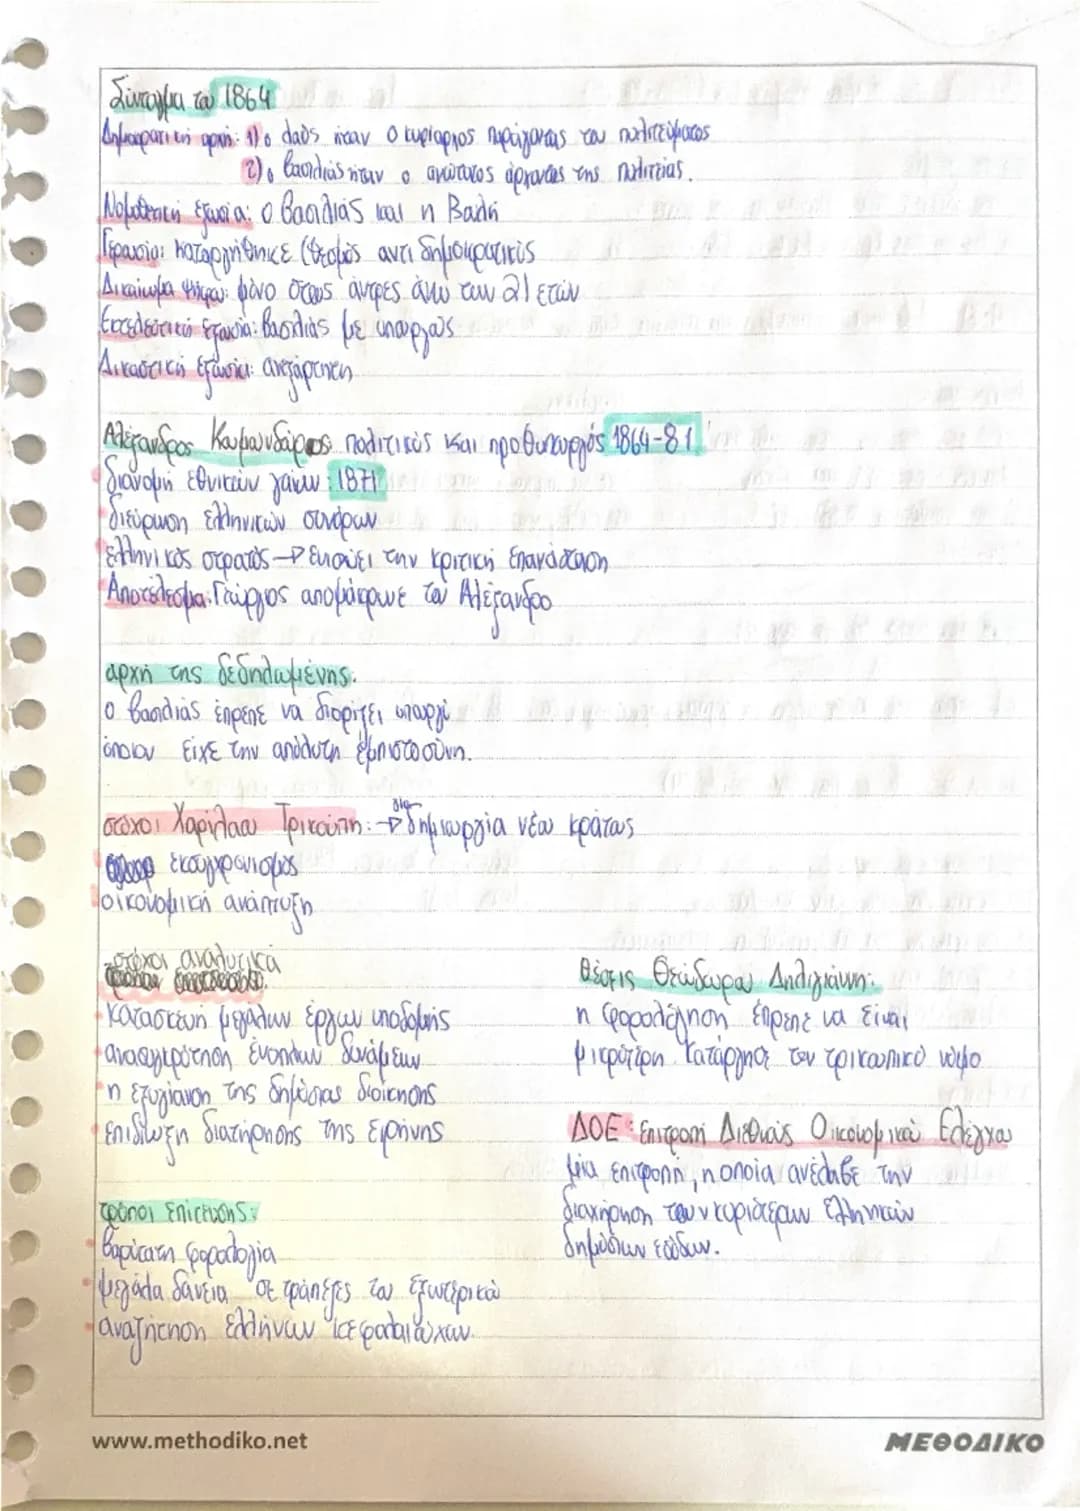 Σύνταγμα του 1864
Δημοκρατική αρχή: 1) ο λαός ήταν ο κυρίαρχος παράγοντας του πολιτεύματος
2) ο βασιλιάς ήταν ο ανώτατος άρχοντας της πολιτείας.
Νομοθετική εξουσία: ο βασιλιάς και η Βουλή
Γερουσία: καταργήθηκε (θεσμός αντιδημοκρατικός
Δικαίωμα ψήφου: μόνο στους άντρες άνω των 21 ετών
Εκτελεστική εξουσία: βασιλιάς με υπουργούς
Δικαστική εξουσία: ανεξάρτητη
Αλέξανδρος Κουμουνδούρος πολιτικός και προθυπουργός 1864-81
διανομή εθνικών γαιών: 1871
διεύρυνση ελληνικών συνόρων
ελληνικός στρατός → ενισχύει την κριτική επανάσταση
Αποτέλεσμα: Γεώργιος απομάκρυνε τον Αλέξανδρο
αρχή της δεδηλωμένης.
ο βασιλιάς έπρεπε να διορίζει υπουργό
όποιον είχε την απόλυτη εμπιστοσύνη.
στόχοι Χαρίλαου Τρικούπη: → δημιουργία νέου κράτους
εκσυγχρονισμός
οικονομική ανάπτυξη
στόχοι αναλυτικά
κατασκευή μεγάλων έργων υποδομής
ανασυγκρότηση ένοπλων δυνάμεων
η εξυγίανση της δημόσιας διοίκησης
επιδίωξη διατήρησης της ειρήνης
τρόποι επίτευξης:
βαρύτατη φορολογία
μεγάλα δάνεια σε τράπεζες του εξωτερικού
αναζήτηση ελλήνων κεφαλαιούχων.
Θέσεις Θεώδωρου Δηλιγιάννη:
η φορολόγηση έπρεπε να είναι
μικρότερη. Κατάργησε τον τρικουπικό νόμο
ΔΟΕ: Επιτροπή Διεθνούς Οικονομικού Ελέγχου
μία επιτροπή, η οποία ανέλαβε την
διαχήρηση των κυριότερων ελληνικών
δημόσιων εσόδων.
www.methodiko.net
ΜΕΘΟΔΙΚΟ